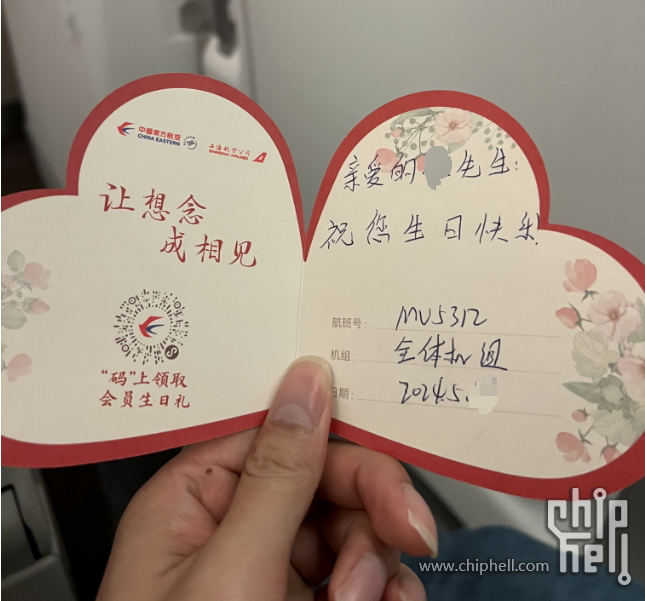 中國東方航空
CHINA EASTERN
上海航空公司
SHANGHAI AIRLINES
让想念
成相见
“码”上领取
会员生日礼
亲爱的 先生:
祝您生日快乐!
航班号: MU5312
机组: 全体机组
日期: 2024.5.
chip
hell
www.chiphell.com